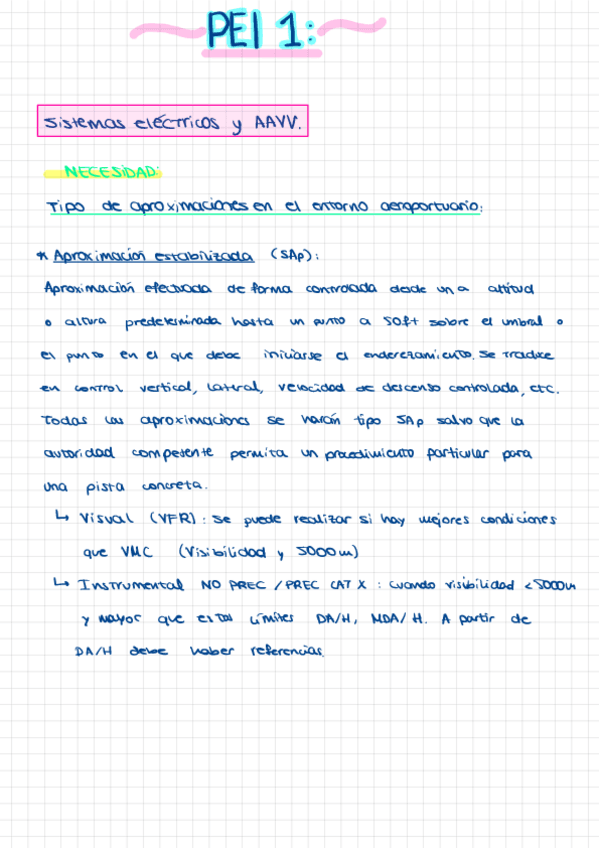 PEI 1:
Sistemas eléctricos y AAVV.
NECESIDAD:
Tipo de aproximaciones en el entorno aeroportuario:
* Aproximación estabilizada (SAp):
Aproximación efectuada de forma controlada desde una altitud
o altura predeterminada hasta un punto a 50ft sobre el umbral o
el punto en el que debe iniciarse el enderezamiento. Se traduce
en control vertical, lateral, velocidad de descenso controlada, etc.
Todas las aproximaciones se harán tipo SAp salvo que la
autoridad competente permita un procedimiento particular para
una pista concreta.
↳ Visual (VFR): se puede realizar si hay mejores condiciones
que VMC (Visibilidad y 5000m)
↳ Instrumental NO PREC / PREC CAT X : cuando visibilidad < 5000m
y mayor que estos límites DA/H, MDA/H. A partir de
DA/H debe haber referencias.